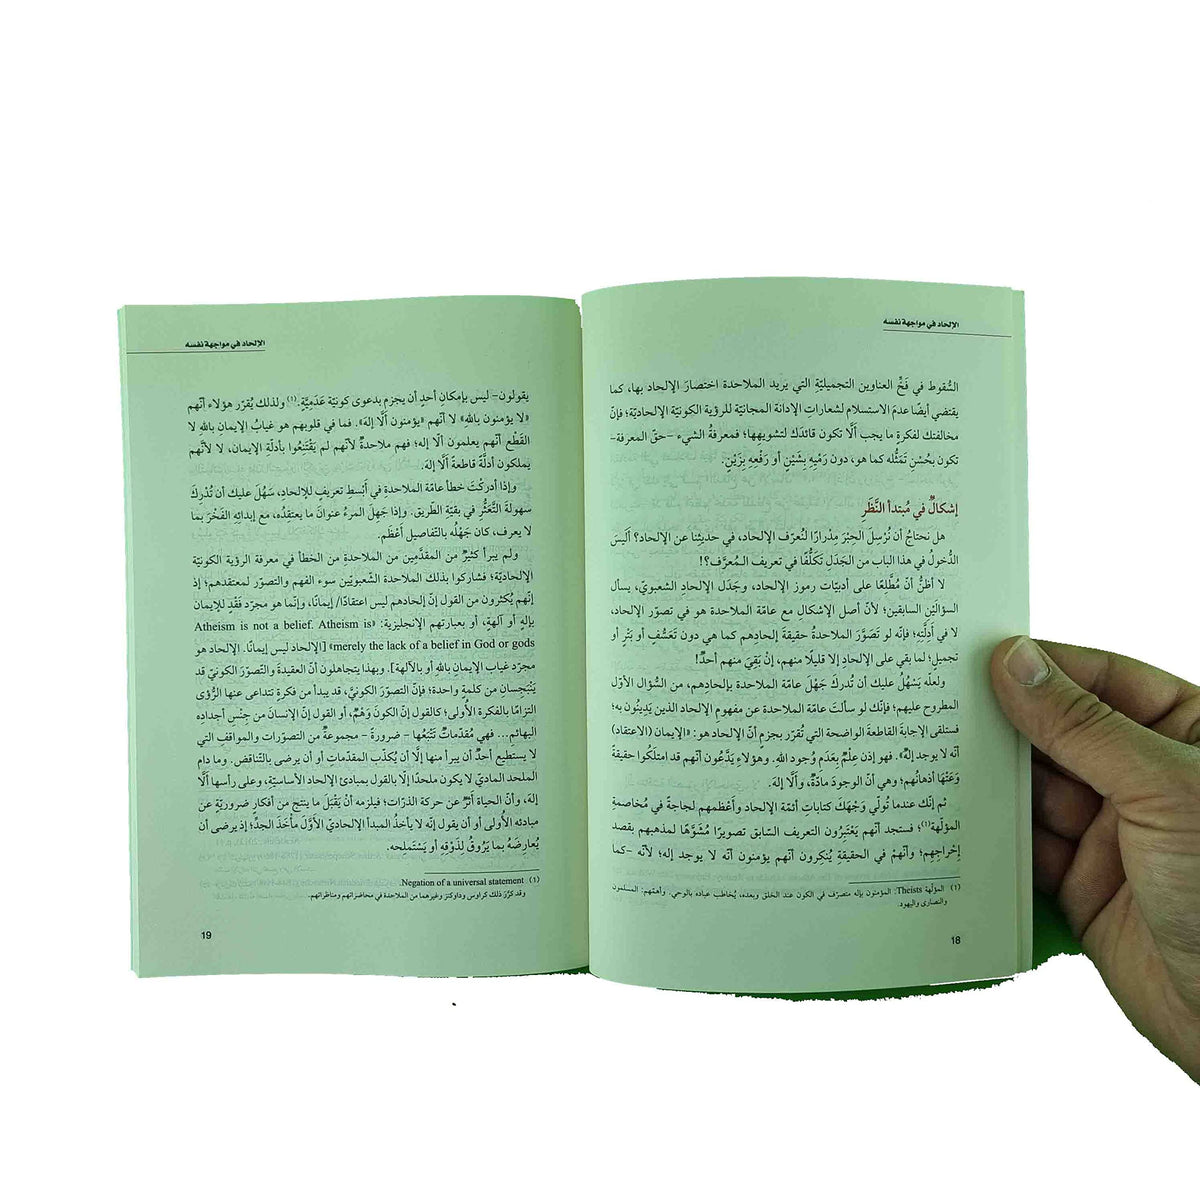 الإلحاد في مواجهة نفسه
السُّقوط في فَخِّ العناوين التجميليَّةِ التي يَريد الملاحدة اختصارَ الإلحادِ بها، كما
يقتضي أيضًا عدمَ الاستسلام لشعاراتِ الإدانة المجانيَّةِ للرؤية الكونيّة الإلحاديّة؛ فإنّ
مخالفتك لفكرةٍ ما يجب ألَّا تكون قائدَك لتشويهها؛ فمعرفةُ الشيء –حقّ المعرفة–
تكون بحُسْنِ تَمَثُّله كما هو، دون رَميِهِ بِشَيْنٍ أو رَفْعِهِ بِزَيْنٍ.
إشكالٌ في مُبتدأ النَّظَرِ
هل نحتاجُ أن نُرْسِلَ الحِبْرَ مِدْرارًا لنُعرّف الإلحاد، في حديثِنا عن الإلحاد؟ أَلَيسَ
الدُّخولُ في هذا الباب من الجَدَلِ تَكَلُّفًا في تعريف المُعرَّف؟!
لا أظنُّ أنّ مُطَّلِعًا على أدبيَّات رموز الإلحاد، وجَدَل الإلحادِ الشعبويّ، يسأل
السؤالَيْنِ السابقين؛ لأنّ أصل الإشكالِ مع عامّة الملاحدة هو في تصوّر الإلحاد،
لا في أدِلَّتِهِ؛ فإنّه لو تَصَوَّرَ الملاحدةُ حقيقةَ إلحادهم كما هي دون تَعَسُّفٍ أو بَتْرٍ أو
تجميلٍ؛ لما بقي على الإلحاد إلا قليلًا منهم، إنْ بَقِيَ منهم أحدٌ!
ولعلّه يَسْهُلُ عليك أن تُدركَ جَهْلَ عامّة الملاحدة بإلحادِهم، من السُّؤال الأوّل
المطروح عليهم؛ فإنّك لو سألتَ عامّةَ الملاحدة عن مفهومِ الإلحاد الذين يَدِينُون به؛
فستلقى الإجابةَ القاطعةَ الواضحة التي تُقرّر بجزمٍ أنّ الإلحاد هو: «الإيمان (الاعتقاد)
أنّه لا يوجد إله». فهو إذن علمٌ بعَدَم وُجودِ الله. وهؤلاءِ يَدَّعُون أنّهم قد امتلَكُوا حقيقةً
وَعَتْها أذهانُهم؛ وهي أنّ الوجودَ مادّةٌ، وألَّا إله.
ثم إنّك عندما تُولّي وَجْهَكَ كتاباتِ أئمّة الإلحاد وأَعْظمِهم لجاجةً في مُخاصمةِ
المؤلّهة(١)؛ فستجد أنّهم يَعْتَبِرُون التعريف السّابق تصويرًا مُشَوَّهًا لمذهبهم بقصد
إحْراجِهم؛ وأنّهم في الحقيقةِ يُنكِرون أنّهم يؤمنون أنّه لا يوجد إله؛ لأنّه –كما
(١) المؤلّهة Theists: المؤمنون بإله متصرّف في الكون عند الخلق وبعده، يُخاطب عباده بالوحي. وأهمّهم: المسلمون
والنصارى واليهود.
18
الإلحاد في مواجهة نفسه
يقولون– ليس بإمكانِ أحدٍ أن يجزم بدعوى كونيّة عَدَمِيَّةٍ.(١) ولذلك يُقرّر هؤلاء أنّهم
«لا يؤمنون بالله» لا أنّهم «يؤمنون ألَّا إلهَ». فما في قلوبهم هو غيابُ الإيمان بالله لا
القَطْع أنّهم يعلمون ألَّا إله؛ فهم ملاحدةٌ لأنّهم لم يَقْتَنِعُوا بأدلّة الإيمان، لا لأنّهم
يملكون أدلّةً قاطعةً ألَّا إله.
وإذا أدركْتَ خطأ عامّة الملاحدةِ في أَبْسط تعريفٍ للإلحاد، سَهُل عليك أن تُدْرِكَ
سهولةَ التَّعَثُّر في بقيّة الطّريق. وإذا جَهِلَ المرءُ عنوانَ ما يعتقدُه، مع إبدائِهِ الفَخْرَ بما
لا يعرف، كان جَهْلُه بالتّفاصيل أعْظَم.
ولم يبرأ كثيرٌ من المقدَّمِين من الملاحدة من الخطأ في معرفة الرؤية الكونيّة
الإلحاديّة؛ فشاركوا بذلك الملاحدة الشّعبويّين سوء الفهم والتصوّر لمعتقدهم؛ إذ
إنّهم يُكثرون من القول إنّ إلحادهم ليس اعتقادًا/ إيمانًا، وإنّما هو مجرّد فَقْدٍ للإيمان
بإلهٍ أو آلهةٍ، أو بعبارتهم الإنجليزية: «Atheism is not a belief. Atheism is
merely the lack of a belief in God or gods» [الإلحاد ليس إيمانًا. الإلحاد هو
مجرّد غياب الإيمانِ بالله أو بالآلهة]. وبهذا يتجاهلون أنّ العقيدة والتصوّرَ الكونيّ قد
يَنْبَجِسانِ من كلمةٍ واحدة؛ فإنّ التصوّر الكونيّ، قد يبدأ من فكرةٍ تتداعى عنها الرُّؤى
التزامًا بالفكرة الأُولى؛ كالقول إنّ الكونَ وَهْمٌ، أو القول إنّ الإنسانَ من جِنْسِ أجداده
البهائم... فهي مُقدّماتٌ تَتْبَعُها – ضرورةً – مجموعةٌ من التصوّرات والمواقفِ التي
لا يستطيع أحدٌ أن يبرأ منها إلّا أن يُكذّب المقدّمات أو أن يرضى بالتّناقض. وما دام
الملحد الماديّ لا يكون ملحدًا إلّا بالقول بمبادئ الإلحاد الأساسيّة، وعلى رأسها ألَّا
إلهَ، وأنّ الحياة أثرٌ عن حركة الذرّات؛ فيلزمه أنْ يَقْبَلَ ما ينتج من أفكار ضروريّةٍ عن
مبادئه الأولى أو أن يقول إنّه لا يأخذُ المبدأ الإلحاديّ الأوّلَ مأخَذَ الجدِّ؛ إذ يرضى أن
يُعارِضَهُ بما يَرُوقُ لذَوْقِه أو يَسْتملحه.
(١) Negation of a universal statement.
وقد كرّر ذلك كراوس وداوكنز وغيرهما من الملاحدة في محاضراتهم ومناظراتهم.
19